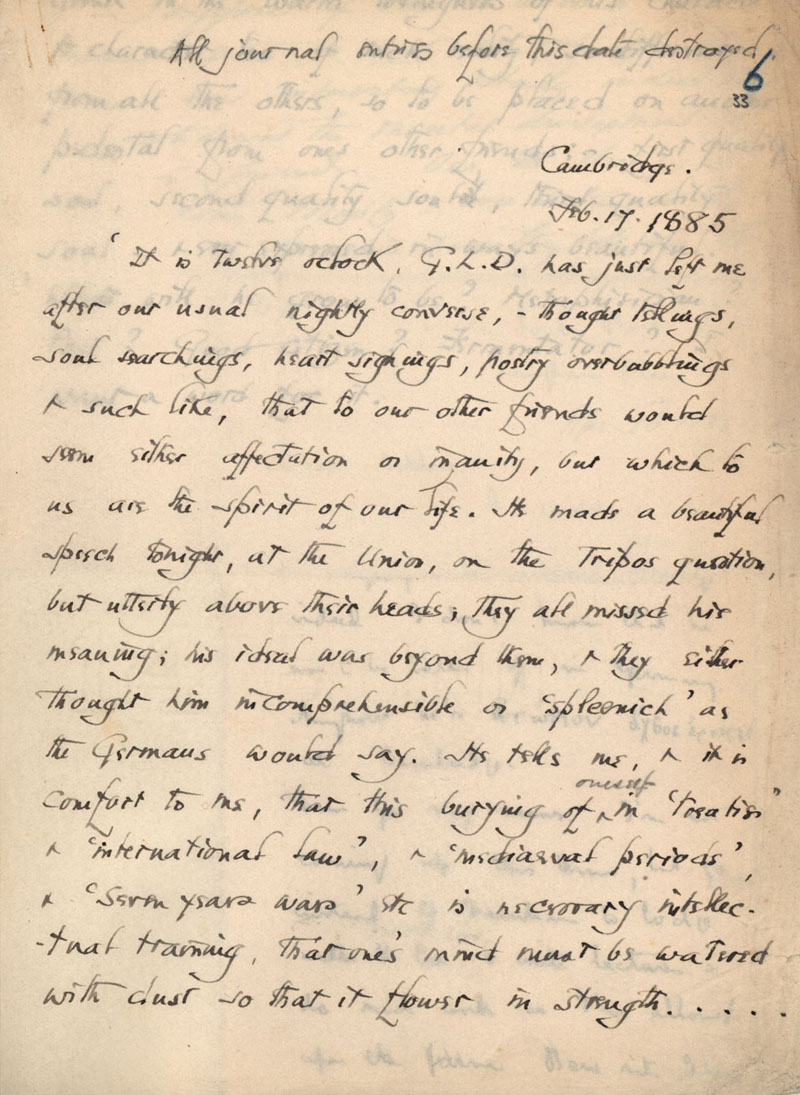 All journal entries before this date destroyed.
6
33
Cambridge.
Feb. 17. 1885
'It is twelve oclock, G.L.D. has just left me
after our usual nightly converse, - thought tellings,
soul searchings, heart sighings, poetry overbubblings
& such like, that to our other friends would
seem either affectation or inanity, but which to
us are the spirit of our life. He made a beautiful
speech tonight, at the Union, on the Tripos question,
but utterly above their heads; they all missed his
meaning; his ideal was beyond them, & they either
thought him incomprehensible or 'spleenich' as
the Germans would say. He tells me, & it is
comfort to me, that this burying of oneself in 'treaties"
& "international law", & "mediaeval periods',
& 'Seven years wars' etc is necessary intellec-
-tual training, that one's mind must be watered
with dust so that it flower in strength . . . . .